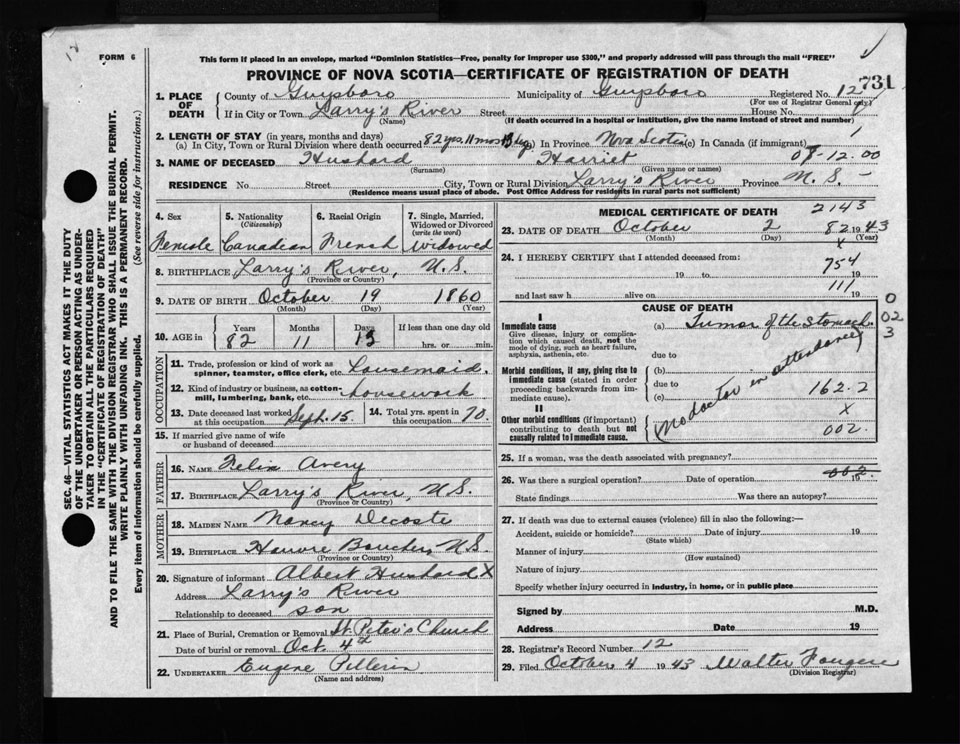 FORM 6
This form if placed in an envelope, marked "Dominion Statistics—Free, penalty for improper use $300," and properly addressed will pass through the mail "FREE"
PROVINCE OF NOVA SCOTIA—CERTIFICATE OF REGISTRATION OF DEATH
731
SEC. 46—VITAL STATISTICS ACT MAKES IT THE DUTY
OF THE UNDERTAKER OR PERSON ACTING AS UNDER-
TAKER TO OBTAIN ALL THE PARTICULARS REQUIRED
IN THE "CERTIFICATE OF REGISTRATION OF DEATH"
AND TO FILE THE SAME WITH THE DIVISION REGISTRAR WHO SHALL ISSUE THE BURIAL PERMIT.
WRITE PLAINLY WITH UNFADING INK. THIS IS A PERMANENT RECORD.
Every item of information should be carefully supplied. (See reverse side for instructions.)
1. PLACE OF DEATH County of Guysboro Municipality of Guysboro Registered No. 12
(For use of Registrar General only)
If in City or Town Larry's River Street House No.
(Name) (If death occurred in a hospital or institution, give the name instead of street and number)
2. LENGTH OF STAY (in years, months and days)
(a) In City, Town or Rural Division where death occurred 82 yrs. 11 mos. In Province Nova Scotia (c) In Canada (if immigrant)
3. NAME OF DECEASED Hushard Harriet 08-12.00
(Surname) (Given name or names)
RESIDENCE No. Street City, Town or Rural Division Larry's River Province N. S.
(Residence means usual place of abode. Post Office Address for residents in rural parts not sufficient)
4. Sex Female
5. Nationality (Citizenship) Canadian
6. Racial Origin French
7. Single, Married, Widowed or Divorced (write the word) Widowed
8. BIRTHPLACE Larry's River, N.S.
(Province or Country)
9. DATE OF BIRTH October 19 1860
(Month) (Day) (Year)
10. AGE in Years Months Days If less than one day old
82 11 13 hrs. or min.
OCCUPATION
11. Trade, profession or kind of work as spinner, teamster, office clerk, etc. Housemaid.
12. Kind of industry or business, as cotton-mill, lumbering, bank, etc. housework
13. Date deceased last worked at this occupation Sept. 15. 14. Total yrs. spent in this occupation 70.
15. If married give name of wife or husband of deceased
FATHER
16. NAME Felix Avery
17. BIRTHPLACE Larry's River, N.S.
(Province or Country)
MOTHER
18. MAIDEN NAME Nancy Decoste
19. BIRTHPLACE Havre Boucher, N.S.
(Province or Country)
20. Signature of informant Albert Hushard X
Address Larry's River
Relationship to deceased son
21. Place of Burial, Cremation or Removal St. Peter's Church
Date of burial or removal Oct. 4th
22. UNDERTAKER Eugene Pellerin
(Name and address)
MEDICAL CERTIFICATE OF DEATH 2143
23. DATE OF DEATH October 2 1943
(Month) (Day) (Year)
82
x
24. I HEREBY CERTIFY that I attended deceased from:
19 to 19
754
and last saw h alive on 19
111
CAUSE OF DEATH
0
02
3
I
Immediate cause
Give disease, injury or complication which caused death, not the mode of dying, such as heart failure, asphyxia, asthenia, etc.
(a) Tumor of the Stomach
due to
Morbid conditions, if any, giving rise to immediate cause (stated in order proceeding backwards from immediate cause).
(b)
due to
(c)
No doctor in attendance
162.2
x
002.
II
Other morbid conditions (if important) contributing to death but not causally related to immediate cause.
25. If a woman, was the death associated with pregnancy?
26. Was there a surgical operation? Date of operation 19
002
State findings Was there an autopsy?
27. If death was due to external causes (violence) fill in also the following:—
Accident, suicide or homicide? Date of injury 19
(State which)
Manner of injury
(How sustained)
Nature of injury
Specify whether injury occurred in industry, in home, or in public place
Signed by M.D.
Address Date 19
28. Registrar's Record Number 12
29. Filed October 4 1943 Walter Fougere
(Division Registrar)